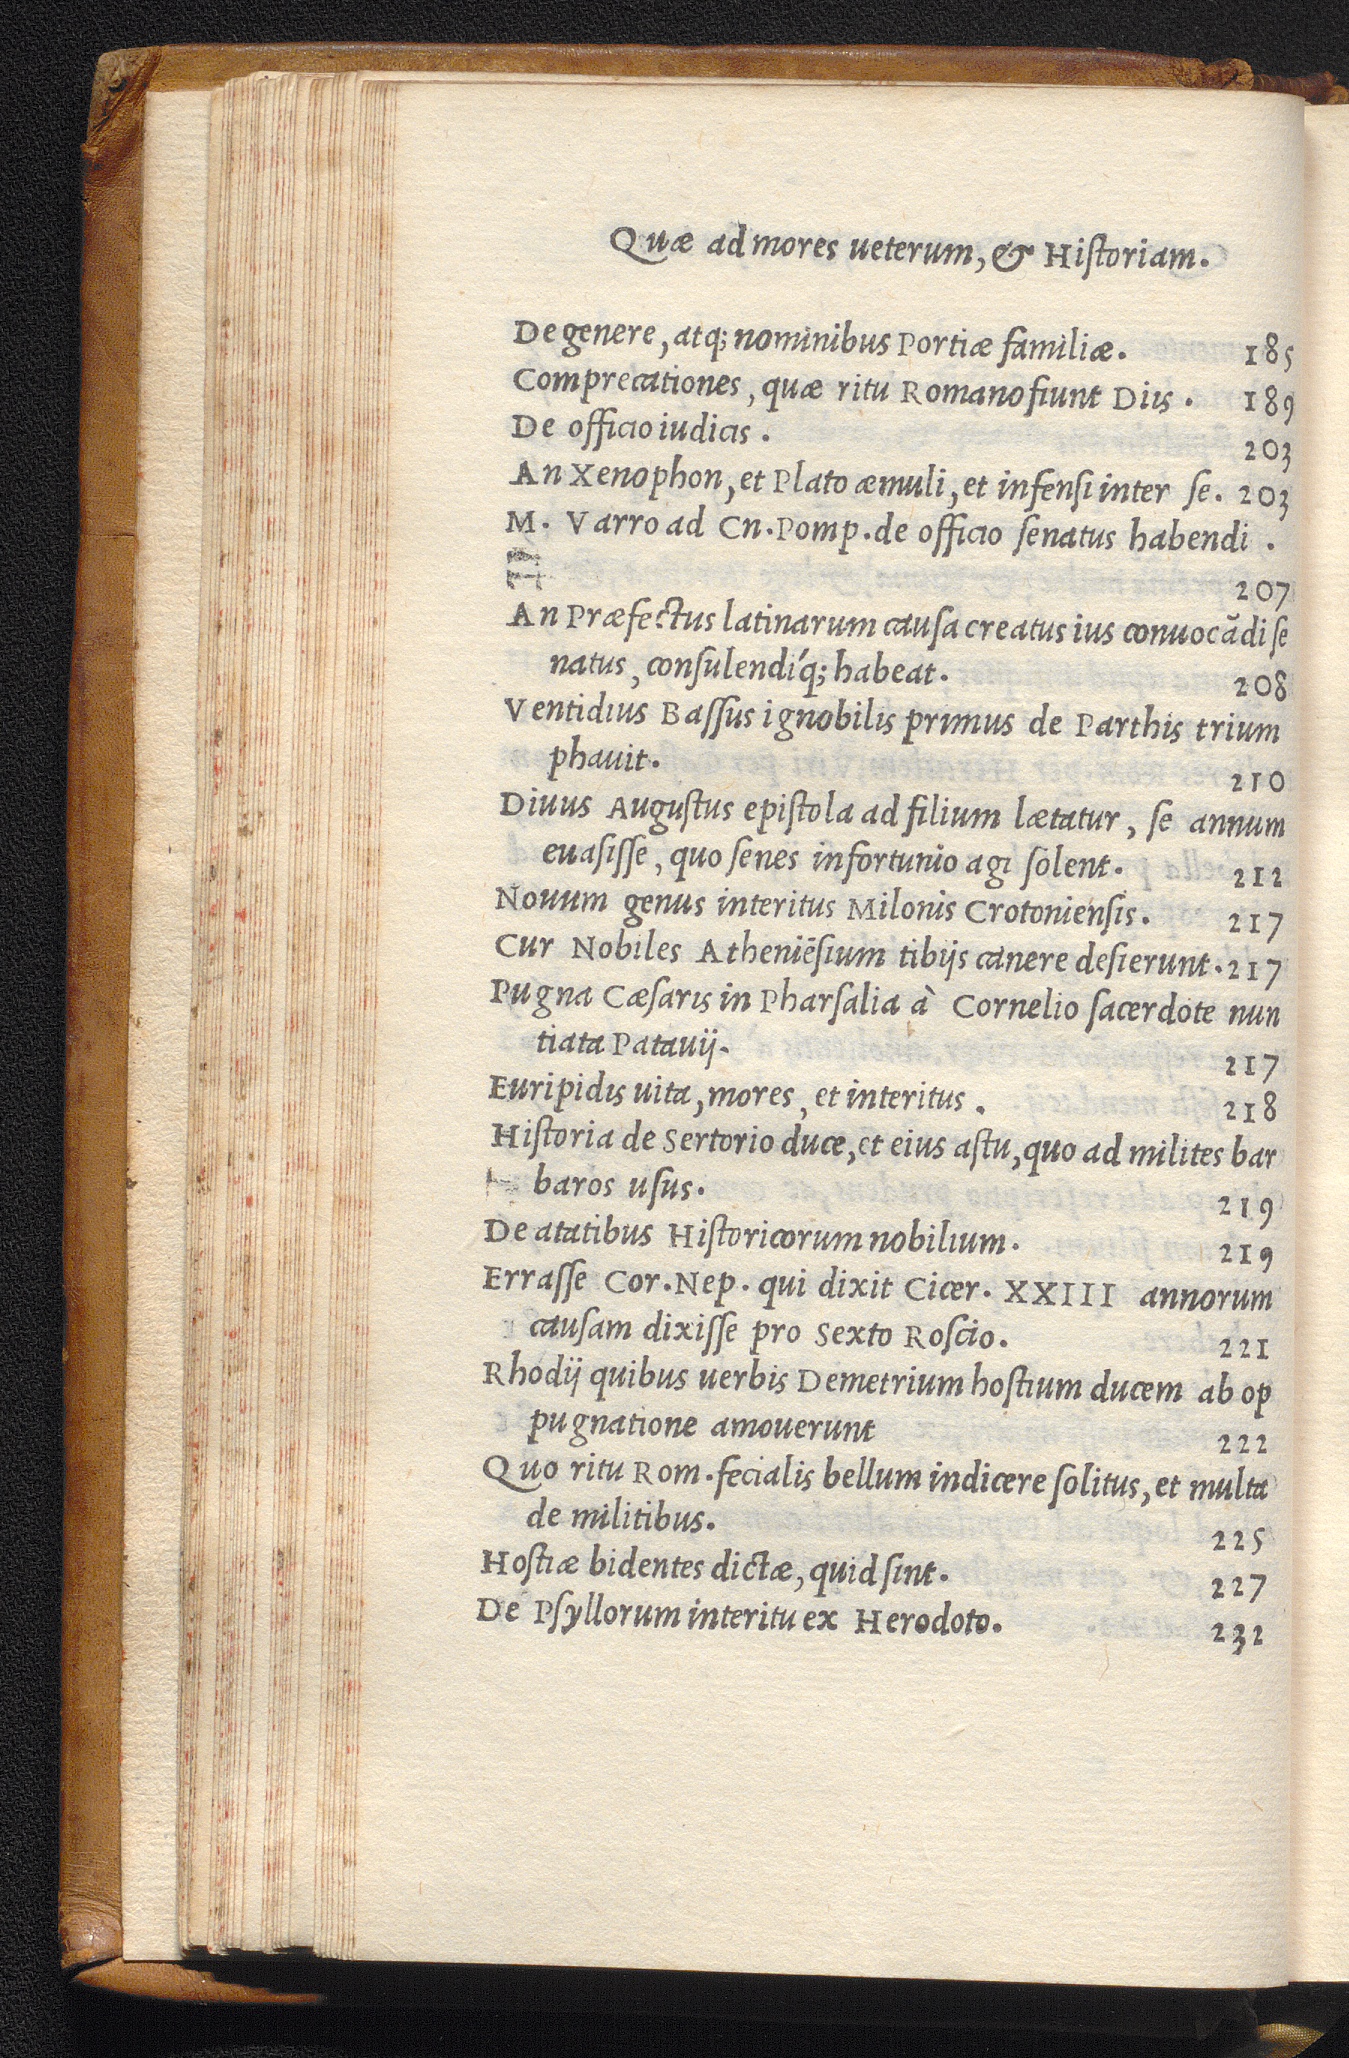 Quæ ad mores ueterum, & Hiſtoriam.
De genere, atq; nominibus Portiæ familiæ. 185
Comprecationes, quæ ritu Romano fiunt Diis. 189
De officio iudicis. 203
An Xenophon, et Plato æmuli, et infenſi inter ſe. 203
M. Varro ad Cn. Pomp. de officio ſenatus habendi.
207
An Præfectus latinarum cauſa creatus ius conuocādi ſe
natus, conſulendíq; habeat. 208
Ventidius Baſſus ignobilis primus de Parthis trium
phauit. 210
Diuus Auguſtus epiſtola ad filium lætatur, ſe annum
euaſiſſe, quo ſenes infortunio agi ſolent. 212
Nouum genus interitus Milonis Crotonienſis. 217
Cur Nobiles Atheniēſium tibijs canere deſierunt. 217
Pugna Cæſaris in Pharſalia à Cornelio ſacerdote nun
tiata Patauij. 217
Euripidis uita, mores, et interitus. 218
Hiſtoria de Sertorio duce, et eius aſtu, quo ad milites bar
baros uſus. 219
De atatibus Hiſtoricorum nobilium. 219
Erraſſe Cor. Nep. qui dixit Cicer. XXIII annorum
cauſam dixiſſe pro Sexto Roſcio. 221
Rhodij quibus uerbis Demetrium hoſtium ducem ab op
pugnatione amouerunt 222
Quo ritu Rom. fecialis bellum indicere ſolitus, et multa
de militibus. 225
Hoſtiæ bidentes dictæ, quid ſint. 227
De Pſyllorum interitu ex Herodoto. 232